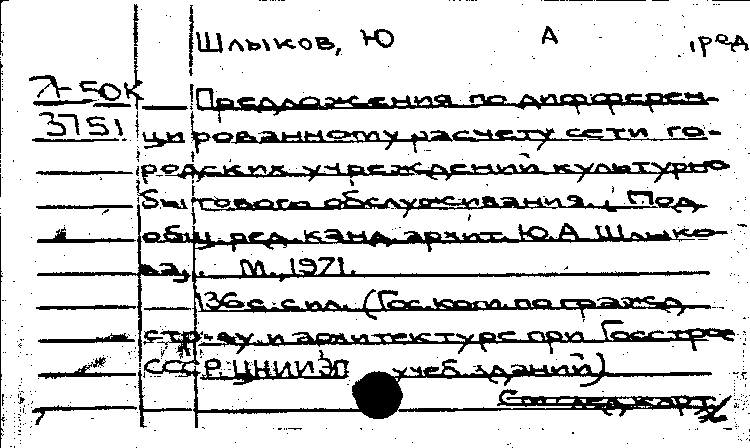 Шлыков, Ю А , ред
Л-50К
3751
Предложения по дифферен-
цированному расчету сети го-
родских учреждений культурно
бытового обслуживания. Под
общ. ред. канд. архит. Ю.А Шлыко-
ва, . М., 1971.
136 с. с ил. (Гос. ком. по гражд
стр-ву и архитектуре при Госстрое
СССР. ЦНИИЭП учеб. зданий)
См след карт